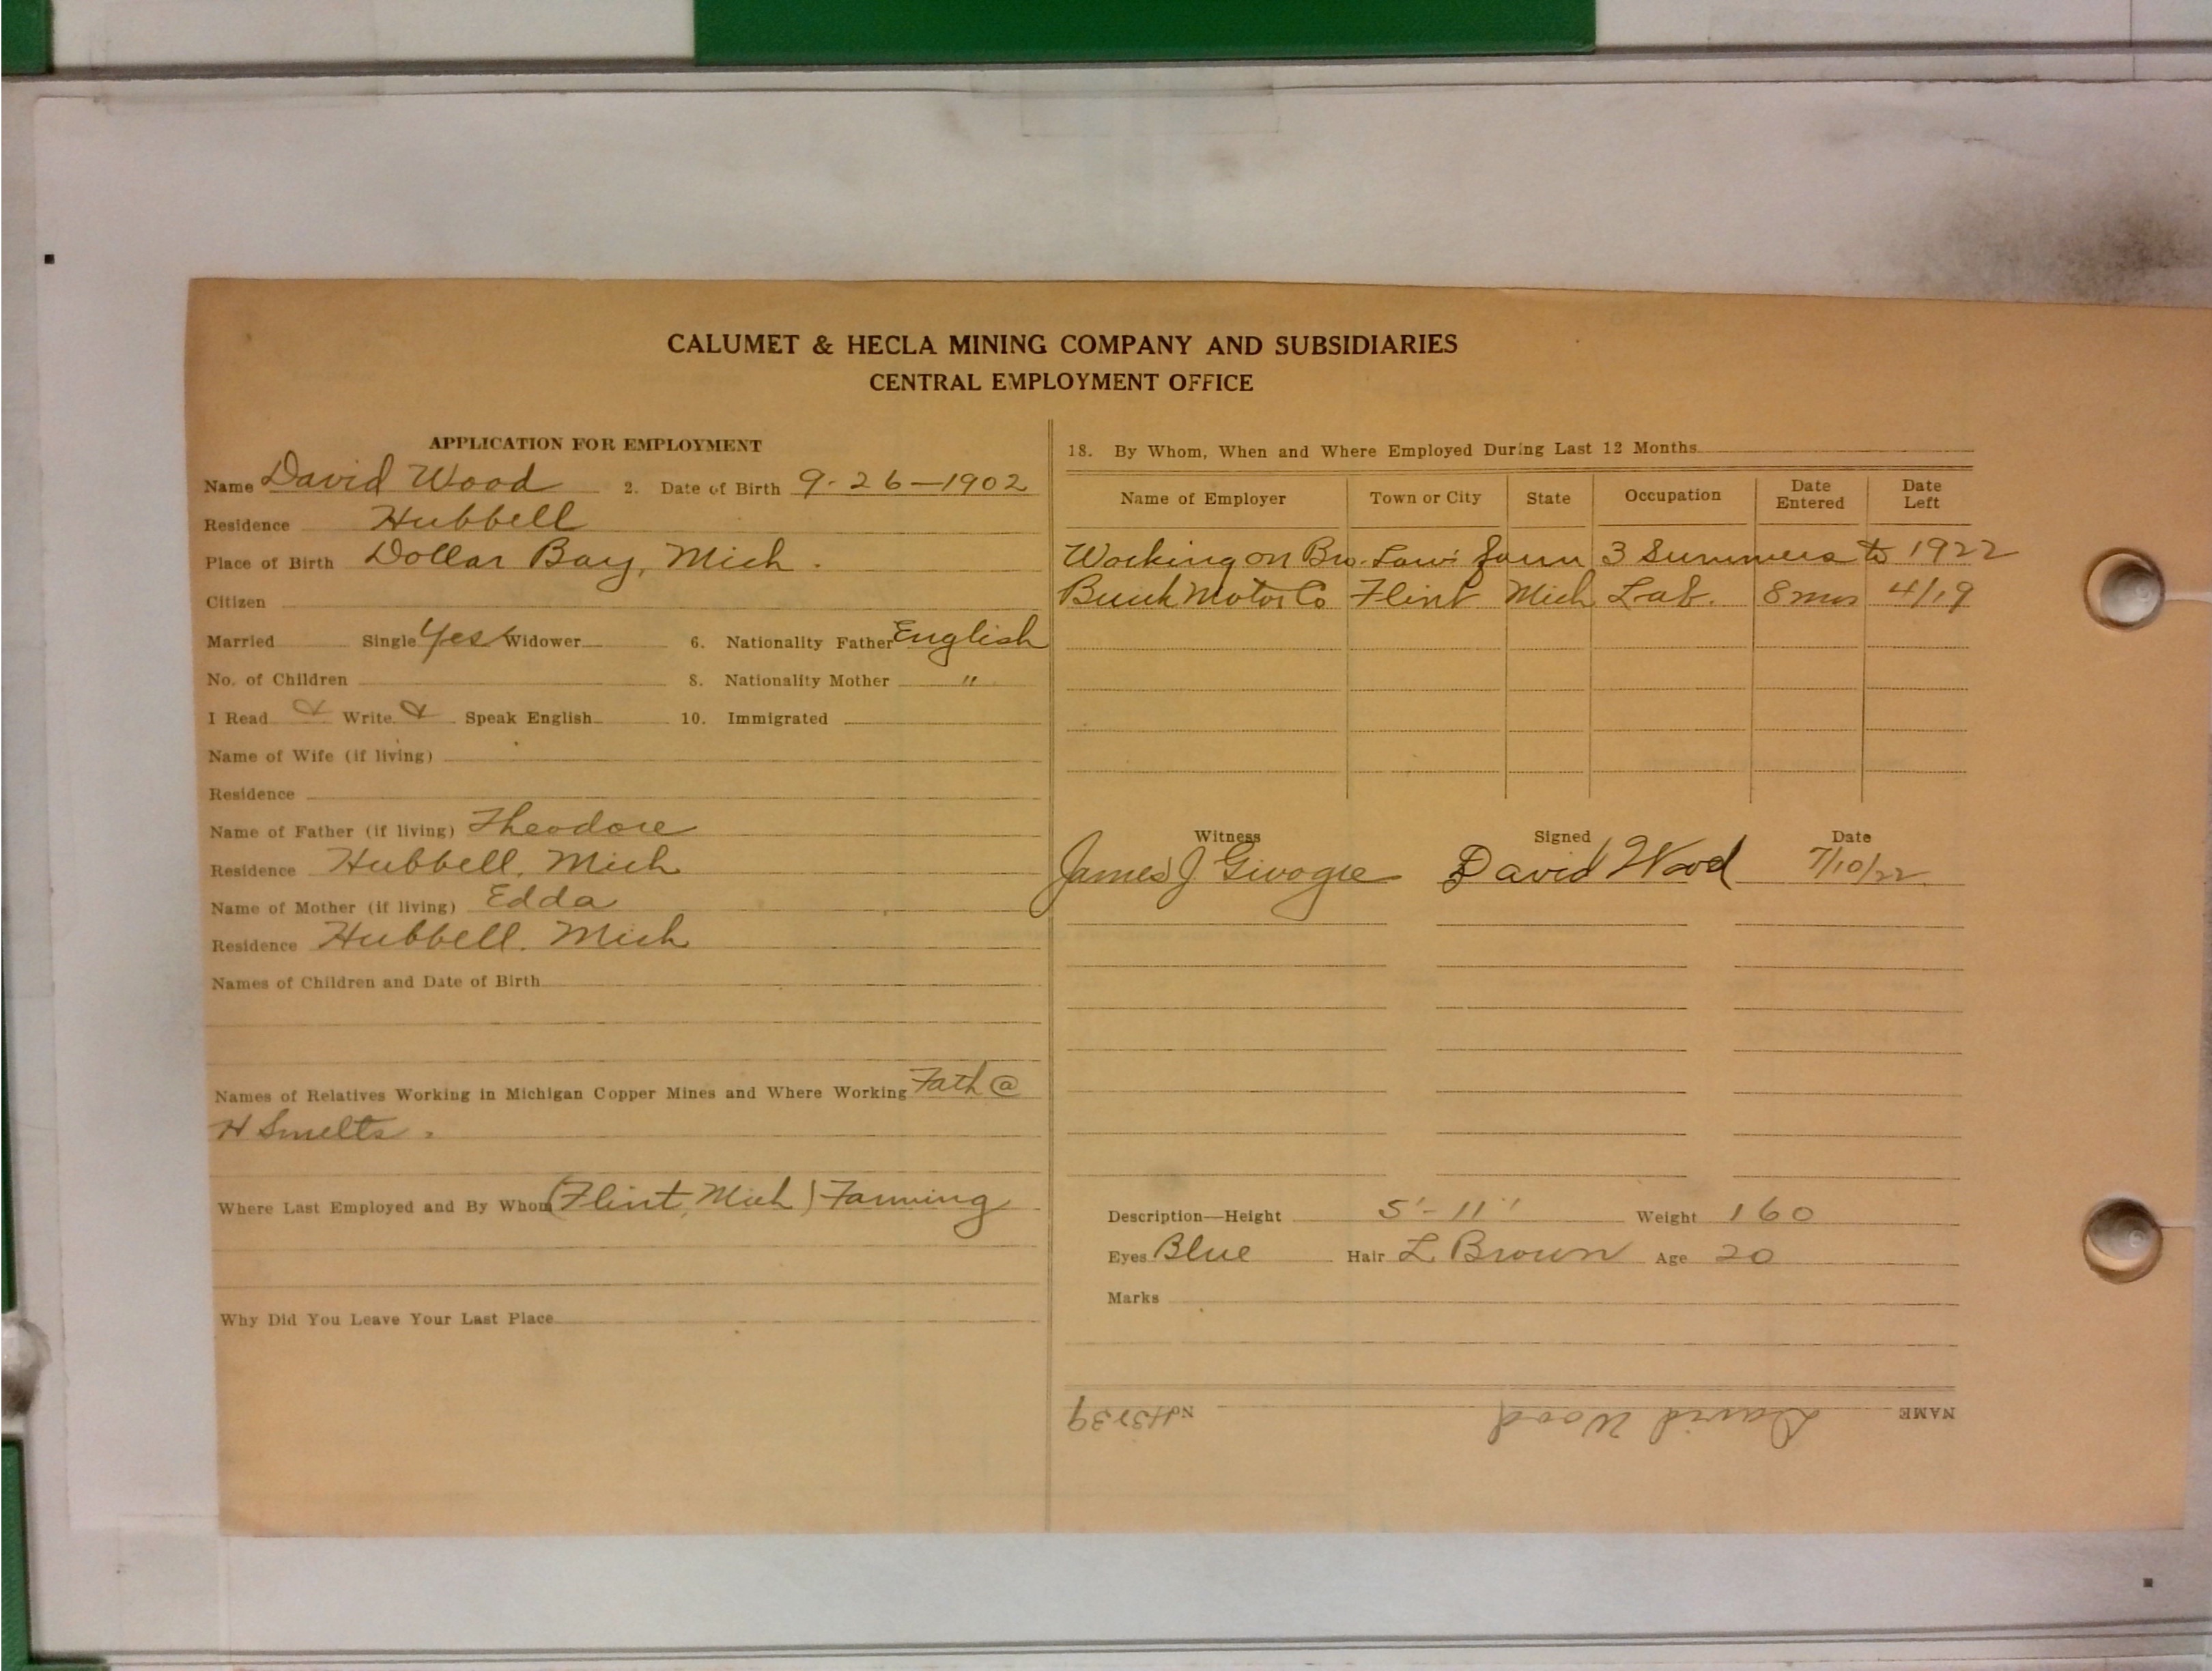 CALUMET & HECLA MINING COMPANY AND SUBSIDIARIES
CENTRAL EMPLOYMENT OFFICE
APPLICATION FOR EMPLOYMENT
Name David Wood 2. Date of Birth 9-26-1902
Residence Hubbell
Place of Birth Dollar Bay, Mich.
Citizen
Married Single Yes Widower 6. Nationality Father English
No. of Children 8. Nationality Mother "
I Read Write Speak English 10. Immigrated
Name of Wife (if living)
Residence
Name of Father (if living) Theodore
Residence Hubbell, Mich
Name of Mother (if living) Edda
Residence Hubbell. Mich
Names of Children and Date of Birth
Names of Relatives Working in Michigan Copper Mines and Where Working Fath @
H Smelts.
Where Last Employed and By Whom (Flint, Mich) Farming
Why Did You Leave Your Last Place
18. By Whom, When and Where Employed During Last 12 Months
Name of Employer Town or City State Occupation Date Entered Date Left
Working on Bro. Law's farm 3 Summers to 1922
Buick Motor Co Flint Mich Lab. 8 mos 4/19
Witness Signed Date
James J David Wood 7/10/22
Description—Height 5'-11" Weight 160
Eyes Blue Hair L Brown Age 20
Marks
NAME David Wood No.